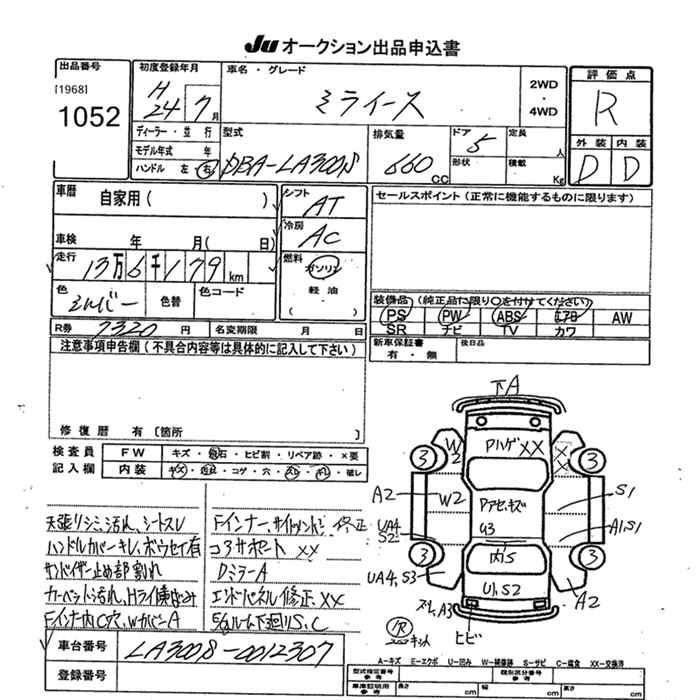 JU オークション出品申込書
出品番号
[1968]
1052
初度登録年月
H
24 7 月
ディーラー・並行
モデル年式 年
ハンドル 左 右
車名・グレード
ミライース
2WD
・
4WD
型式
DBA-LA300S
排気量
660
CC
ドア
5
形状
定員
人
積載
Kg
評価点
R
外装 内装
D D
車歴
自家用( )
車検 年 月( 日)
走行
13万6千179 km
色
シルバー
色替
色コード
シフト
AT
冷房
AC
燃料
ガソリン
軽油
( )
セールスポイント(正常に機能するものに限ります)
装備品 (純正品に限り○を付けてください)
PS PW ABS エアB AW
SR ナビ TV カワ
R券 7320 円
名変期限 月 日
新車保証書
有・無
後日品
注意事項申告欄(不具合内容等は具体的に記入して下さい)
修復暦 有[箇所 ]
検査員
記入欄
FW キズ・飛石・ヒビ割・リペア跡・×要
内装 キズ・汚れ・コゲ・穴・スレ・キレ・破レ
天張リシミ、汚れ、シートスレ
ハンドルカバーキレ、ボウセイ有
サンバイザー止め部割れ
カーペット汚れ、Hライト
Fインナー内C穴、WカバーA
Fインナー、サイドメンバー修正
コアサポート××
DミラーA
エンドパネル修正、××
ルーム下廻りS、C
下A
W2
Pハゲ××
××
3
3
A2
W2
アセ・キズ
U3
S1
UA4
S2
A1,S1
3
内S
3
UA4,S3
U1,S2
A2
スレ,A3
ヒビ
R
キット
車台番号
LA300S-0012307
登録番号
A−キズ E−エクボ U−凹み W−補修跡 S−サビ C−腐食 XX−交換済
型式指定番号
参考
類別区分番号
参考
車庫証明用
参考
長さ
cm
幅
cm
高さ
cm